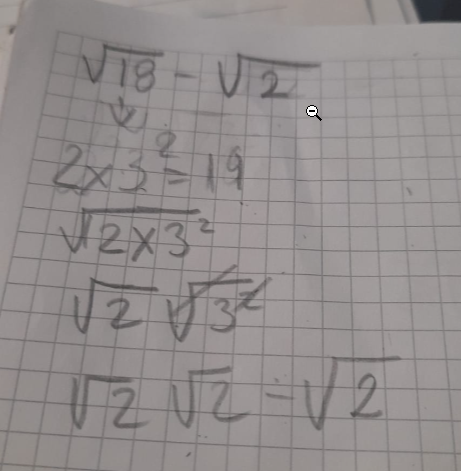 √18 - √2
↓
2×3² = 19
√2×3²
√2 √3²
√2 √2 - √2